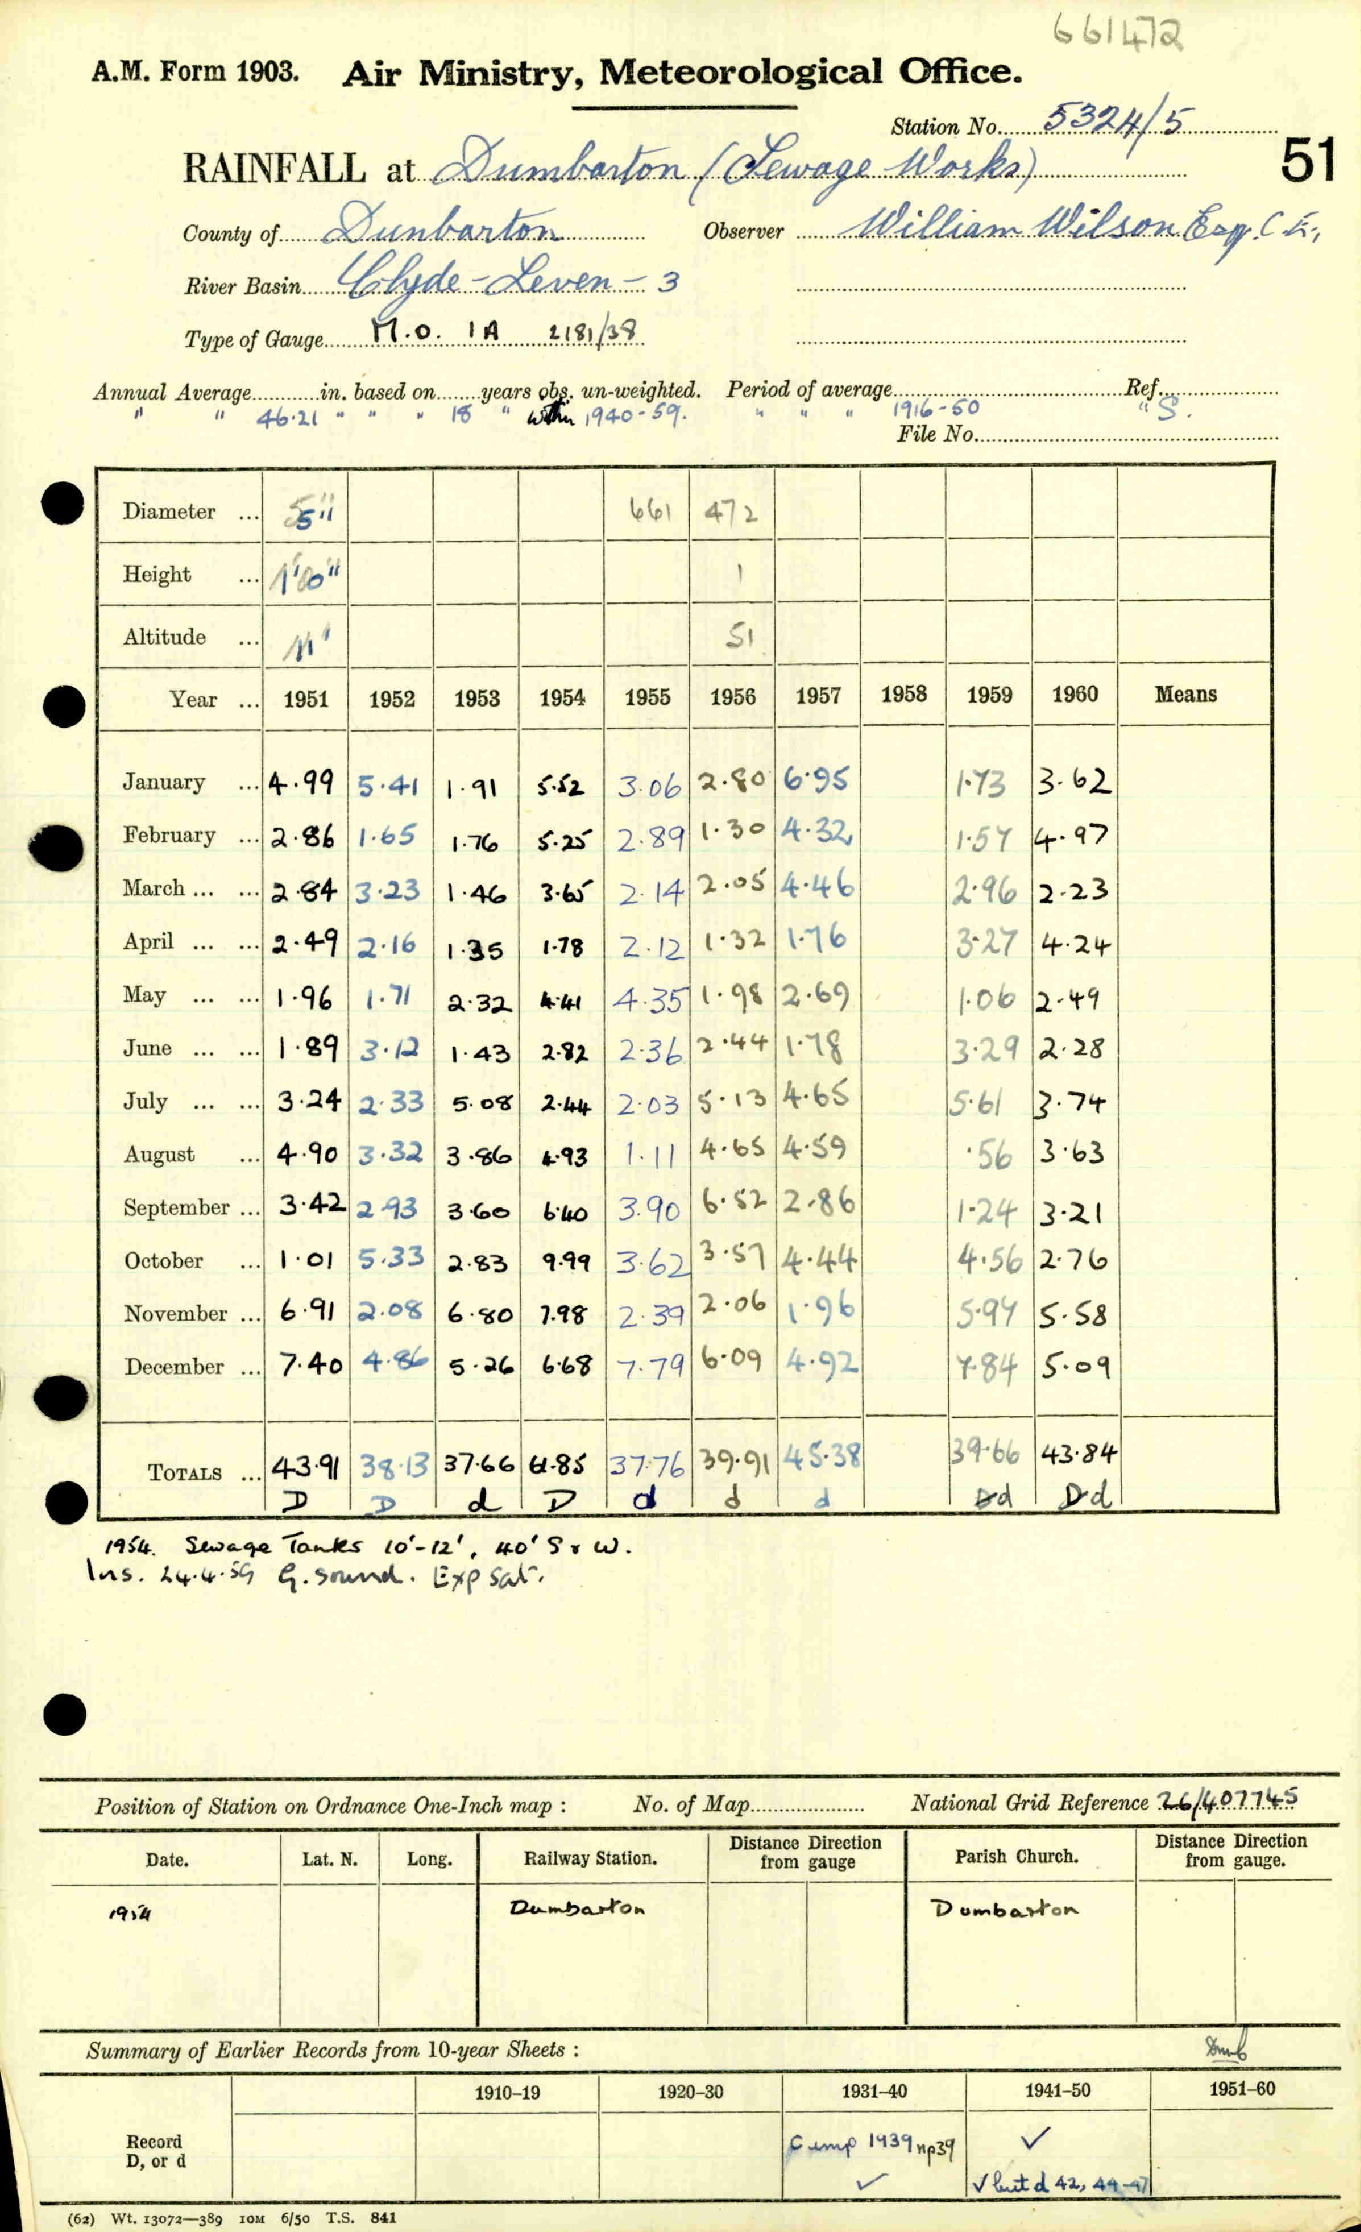 661472
A.M. Form 1903. Air Ministry, Meteorological Office.
Station No. 5324/5
51
RAINFALL at Dumbarton (Sewage Works)
County of Dunbarton Observer William Wilson Esqr. C.E.,
River Basin Clyde - Leven - 3
Type of Gauge M.O. 1A 2181/38
Annual Average in. based on years obs. un-weighted. Period of average Ref.
" " 46.21 " " " 18 " within 1940-59. " " " 1916-50 " S.
File No.
Diameter ... 5" 661 472
Height ... 1'00" 1
Altitude ... 11' 51
Year ... 1951 1952 1953 1954 1955 1956 1957 1958 1959 1960 Means
January ... 4.99 5.41 1.91 5.52 3.06 2.80 6.95 1.73 3.62
February ... 2.86 1.65 1.76 5.25 2.89 1.30 4.32 1.57 4.97
March ... ... 2.84 3.23 1.46 3.65 2.14 2.05 4.46 2.96 2.23
April ... ... 2.49 2.16 1.35 1.78 2.12 1.32 1.76 3.27 4.24
May ... ... 1.96 1.71 2.32 4.41 4.35 1.98 2.69 1.06 2.49
June ... ... 1.89 3.12 1.43 2.82 2.36 2.44 1.78 3.29 2.28
July ... ... 3.24 2.33 5.08 2.44 2.03 5.13 4.65 5.61 3.74
August ... 4.90 3.32 3.86 4.93 1.11 4.65 4.59 .56 3.63
September ... 3.42 2.93 3.60 6.40 3.90 6.52 2.86 1.24 3.21
October ... 1.01 5.33 2.83 9.99 3.62 3.57 4.44 4.56 2.76
November ... 6.91 2.08 6.80 7.98 2.39 2.06 1.96 5.97 5.58
December ... 7.40 4.86 5.26 6.68 7.79 6.09 4.92 7.84 5.09
TOTALS ... 43.91 38.13 37.66 61.85 37.76 39.91 45.38 39.66 43.84
D D d D d d d Dd Dd
1954. Sewage Tanks 10'-12', 40' S & W.
Ins. 24.4.59 G. sound. Exp sat.
Position of Station on Ordnance One-Inch map : No. of Map National Grid Reference 26/407745
Date. Lat. N. Long. Railway Station. Distance Direction from gauge Parish Church. Distance Direction from gauge.
1954 Dumbarton Dumbarton
Summary of Earlier Records from 10-year Sheets : Dumb
1910–19 1920–30 1931–40 1941–50 1951–60
Record D, or d Comp 1939 np39 ✓
✓ ✓ but d 42, 44-47
(62) Wt. 13072—389 10M 6/50 T.S. 841